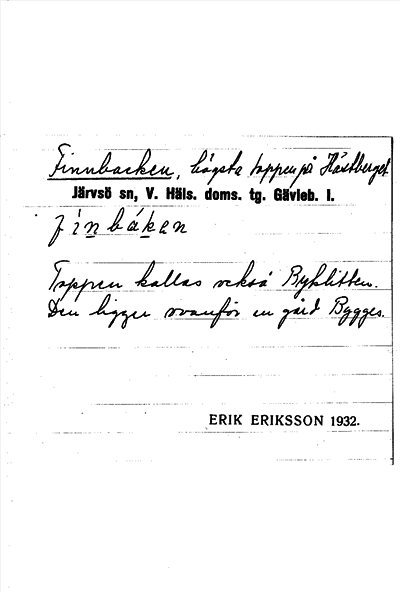 Finnbacken, högsta toppen på Hästberget
Järvsö sn, V. Häls. doms. tg. Gävleb. l.
fìnbák̲en
Toppen kallas också Byklitten.
Den ligger ovanför en gård Bygges.
ERIK ERIKSSON 1932.